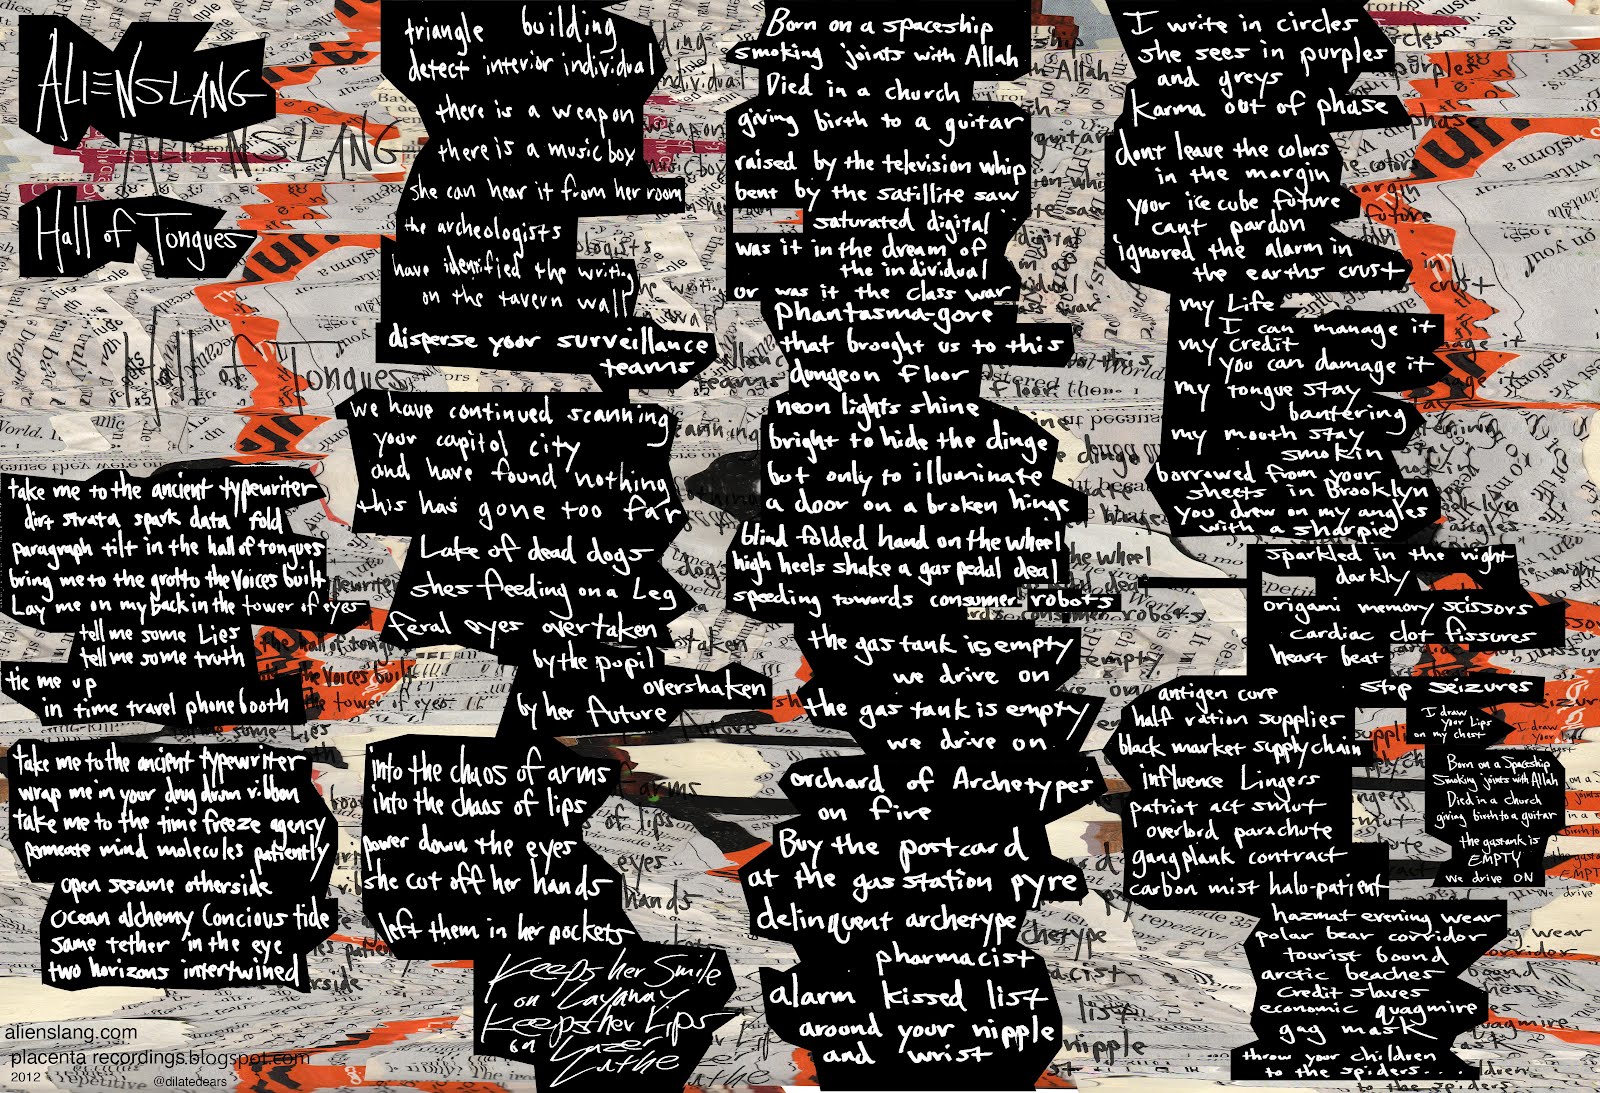 ALIENSLANG
Hall of Tongues
take me to the ancient typewriter
dirt strata spark data fold
paragraph tilt in the hall of tongues
bring me to the grotto the voices built
Lay me on my back in the tower of eyes
tell me some Lies
tell me some truth
tie me up
in time travel phone booth
take me to the ancient typewriter
wrap me in your drum ribbon
take me to the time freeze agency
permeate mind molecules patiently
open sesame otherside
ocean alchemy Concious tide
same tether in the eye
two horizons intertwined
alienslang.com
placenta recordings.blogspot.com
2012
@dilatedears
triangle building
detect interior individual
there is a weapon
there is a music box
she can hear it from her room
the archeologists
have identified the writing
on the tavern wall
disperse your surveillance
teams
we have continued scanning
your capitol city
and have found nothing
this has gone too far
Lake of dead dogs
shes feeding on a Leg
feral eyes overtaken
by the pupil
overshaken
by her future
into the chaos of arms
into the chaos of lips
power down the eyes
she cut off her hands
left them in her pockets
Keeps her Smile
on Layaway
Keeps her Lips
on Lazer
Lathe
Born on a spaceship
smoking joints with Allah
Died in a church
giving birth to a guitar
raised by the television whip
bent by the satillite saw
saturated digital
was it in the dream of
the individual
or was it the class war
Phantasma-gore
that brought us to this
dungeon floor
neon lights shine
bright to hide the dinge
but only to illuminate
a door on a broken hinge
blind folded hand on the wheel
high heels shake a gas pedal deal
speeding towards consumer robots
the gas tank is empty
we drive on
the gas tank is empty
we drive on
orchard of Archetypes
on fire
Buy the postcard
at the gas station pyre
delinquent archetype
pharmacist
alarm kissed list
around your nipple
and wrist
I write in circles
she sees in purples
and greys
Karma out of phase
dont leave the colors
in the margin
your ice cube future
cant pardon
ignored the alarm in
the earths crust
my Life
I can manage it
my credit
you can damage it
my tongue stay
bantering
my mouth stay
smokin
borrowed from your
sheets in Brooklyn
you drew on my angles
with a sharpie
sparkled in the night
darkly
origami memory scissors
cardiac clot fissures
heart beat
stop seizures
antigen cure
half ration supplies
black market supply chain
influence Lingers
patriot act smut
overbord parachute
gangplank contract
carbon mist halo-patient
hazmat evening wear
polar bear corridor
tourist bound
arctic beaches
credit slaves
economic quagmire
gag mask
throw your children
to the spiders....
I draw
your Lips
on my chest
Born on a Spaceship
Smoking joints with Allah
Died in a church
giving birth to a guitar
the gastank is
EMPTY
we drive ON